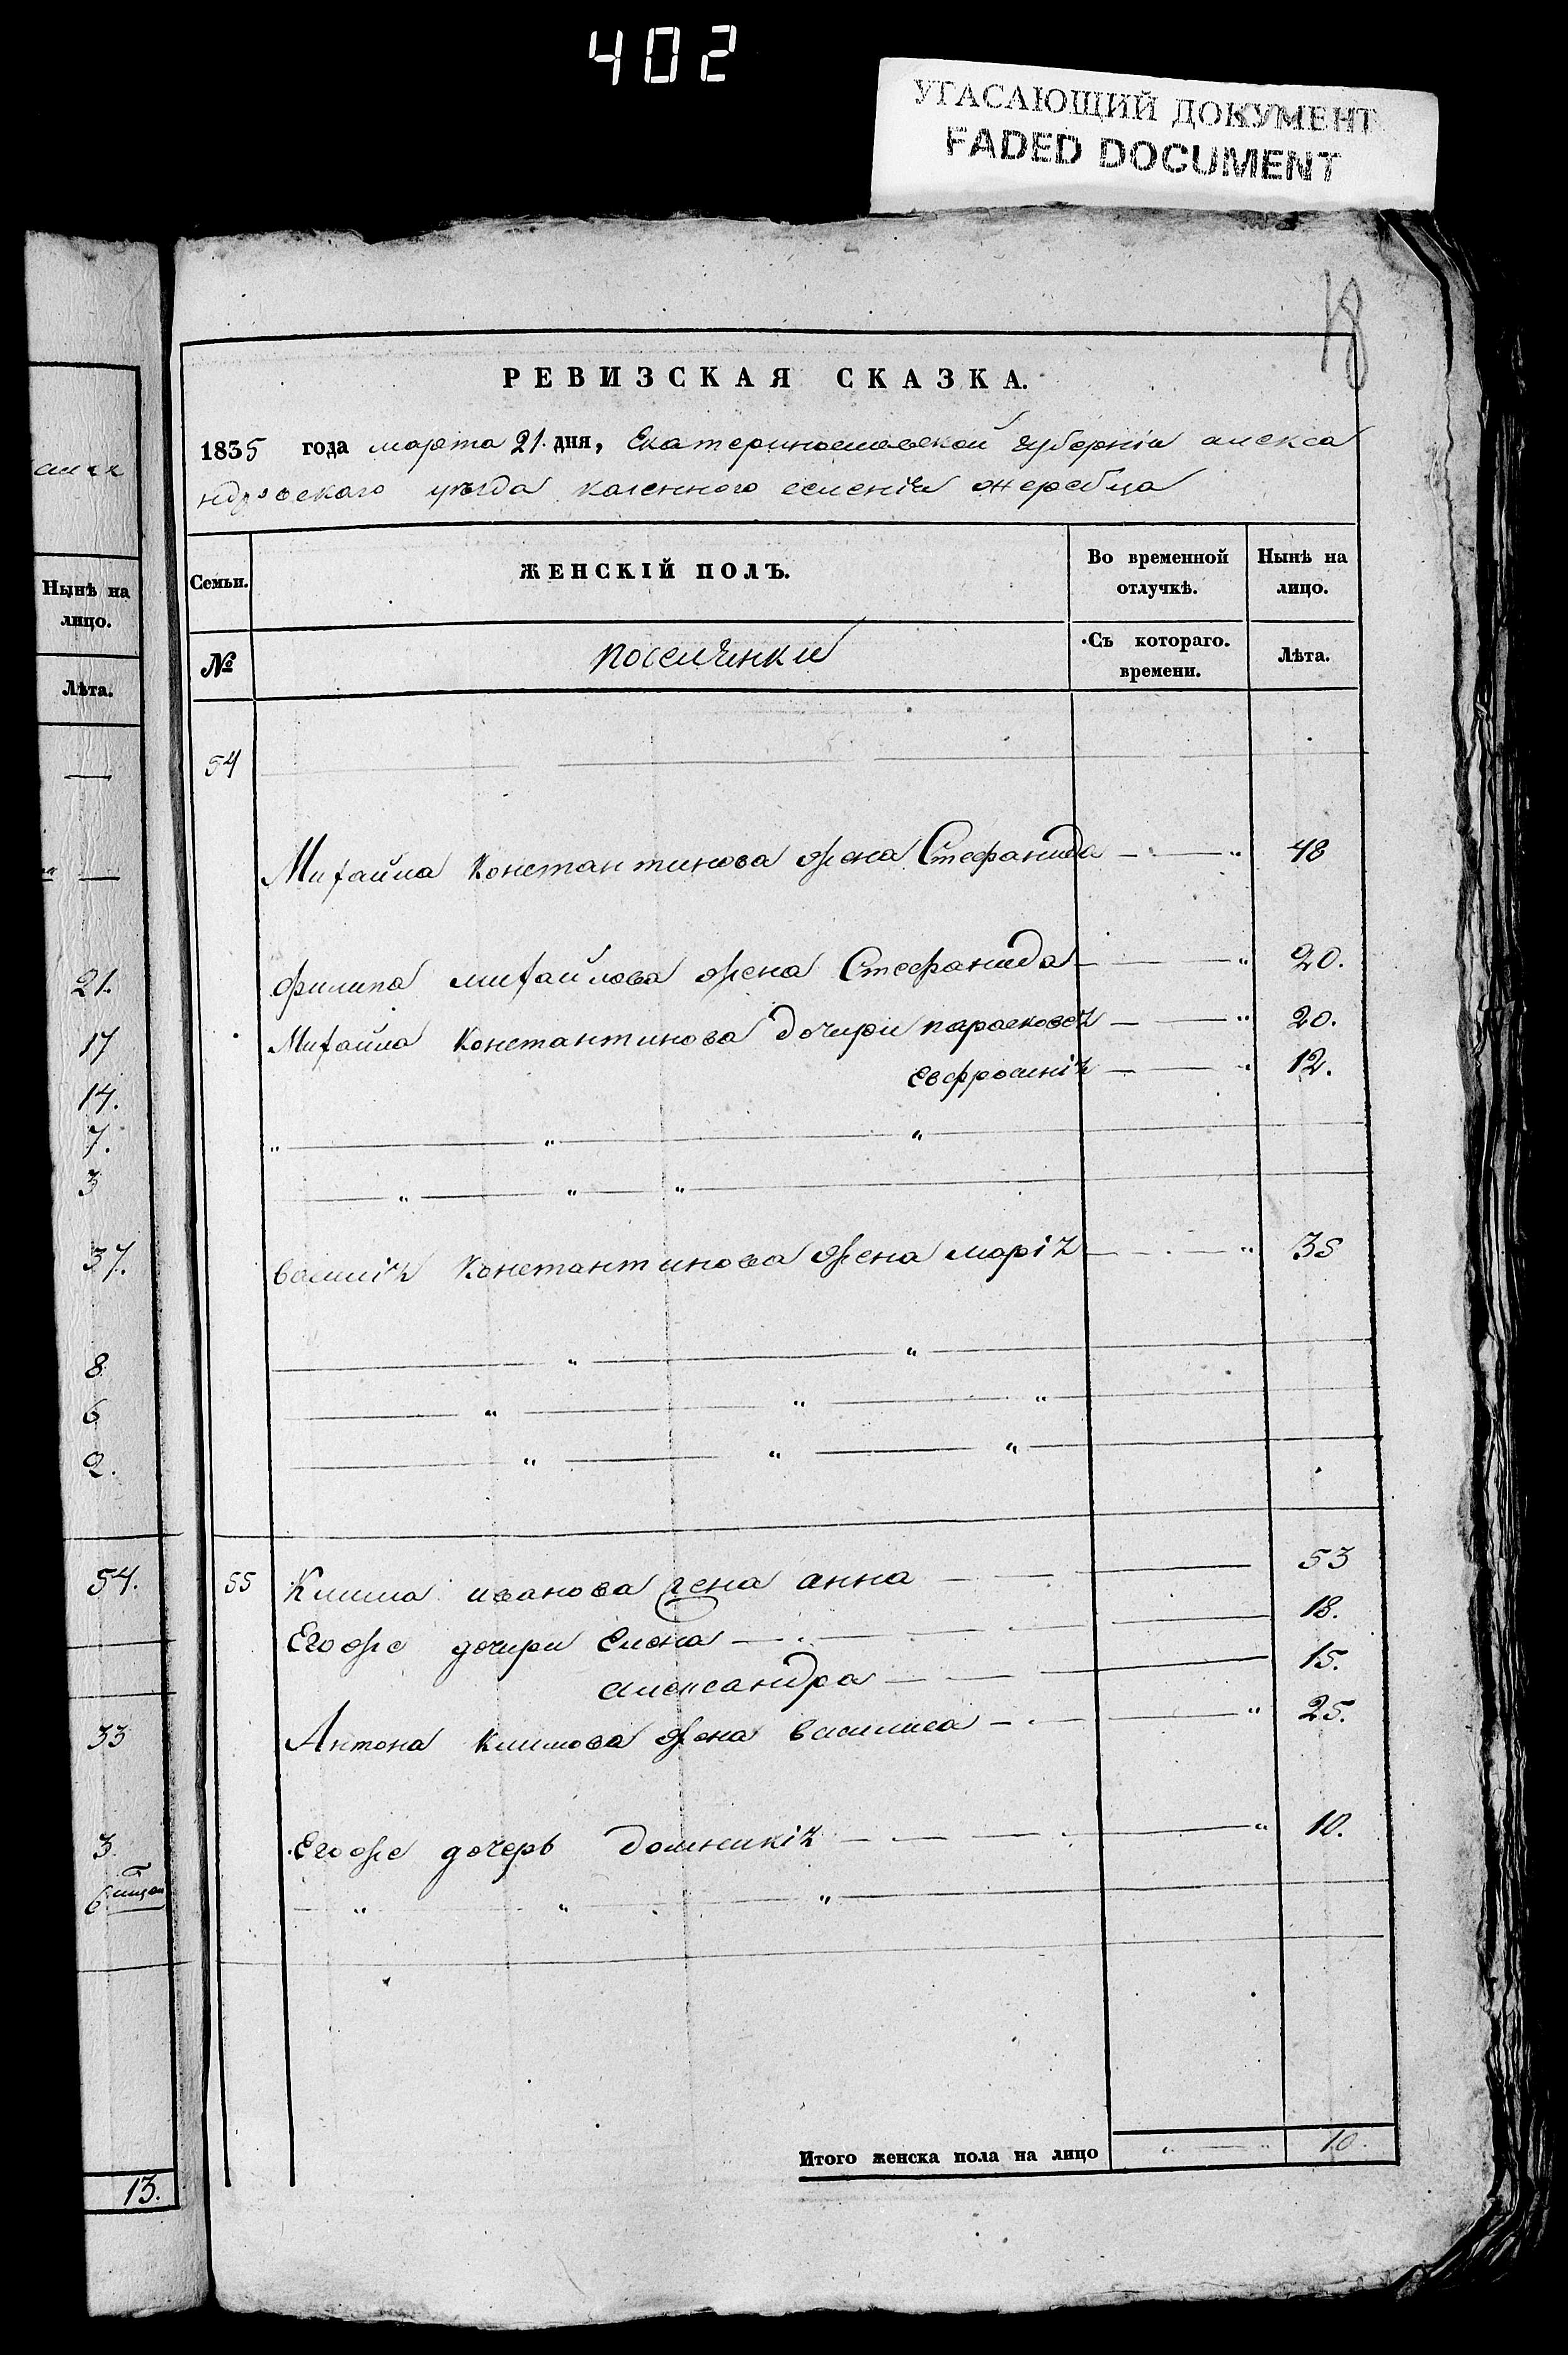 402
УГАСАЮЩИЙ ДОКУМЕНТ
FADED DOCUMENT
18
РЕВИЗСКАЯ СКАЗКА.
1835 года марта 21. дня, Екатеринославской губерніи алекса
ндровского уѣзда казенного селенія жеребца
Семьи.
ЖЕНСКІЙ ПОЛЪ.
Во временной отлучкѣ.
Нынѣ на лицо.
№
поселянки
Съ котораго. времени.
Лѣта.
54
Михайла Константинова жена Стефанида — — „ 48
Филипа михайлова жена Стефанида — — „ 20.
Михайла Константинова дочири парасковея — — „ 20.
евфросинія — — „ 12.
василія Константинова жена марія — — „ 35
55 Клима иванова жена анна — — 53
Егоже дочири елена — — 18.
александра — — 15.
Антона климова жена василиса — — „ 25.
Егоже дочерь домникія — — „ 10.
Итого женска пола на лицо „ — „ 10.
Нынѣ на
лицо.
Лѣта.
—
—
21.
17
14.
7.
3
37.
8
6
2.
54.
33
3.
6
13.